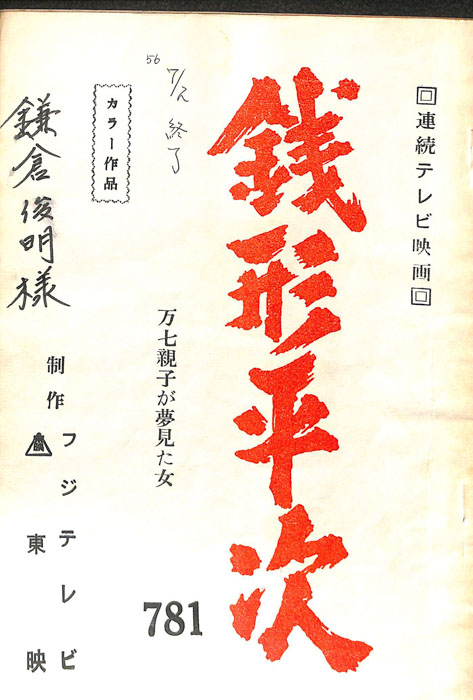 回連続テレビ映画回
銭形平次
万七親子が夢見た女
781
56
7/2 終了
カラー作品
制作
フジテレビ
東映
鎌倉俊明様